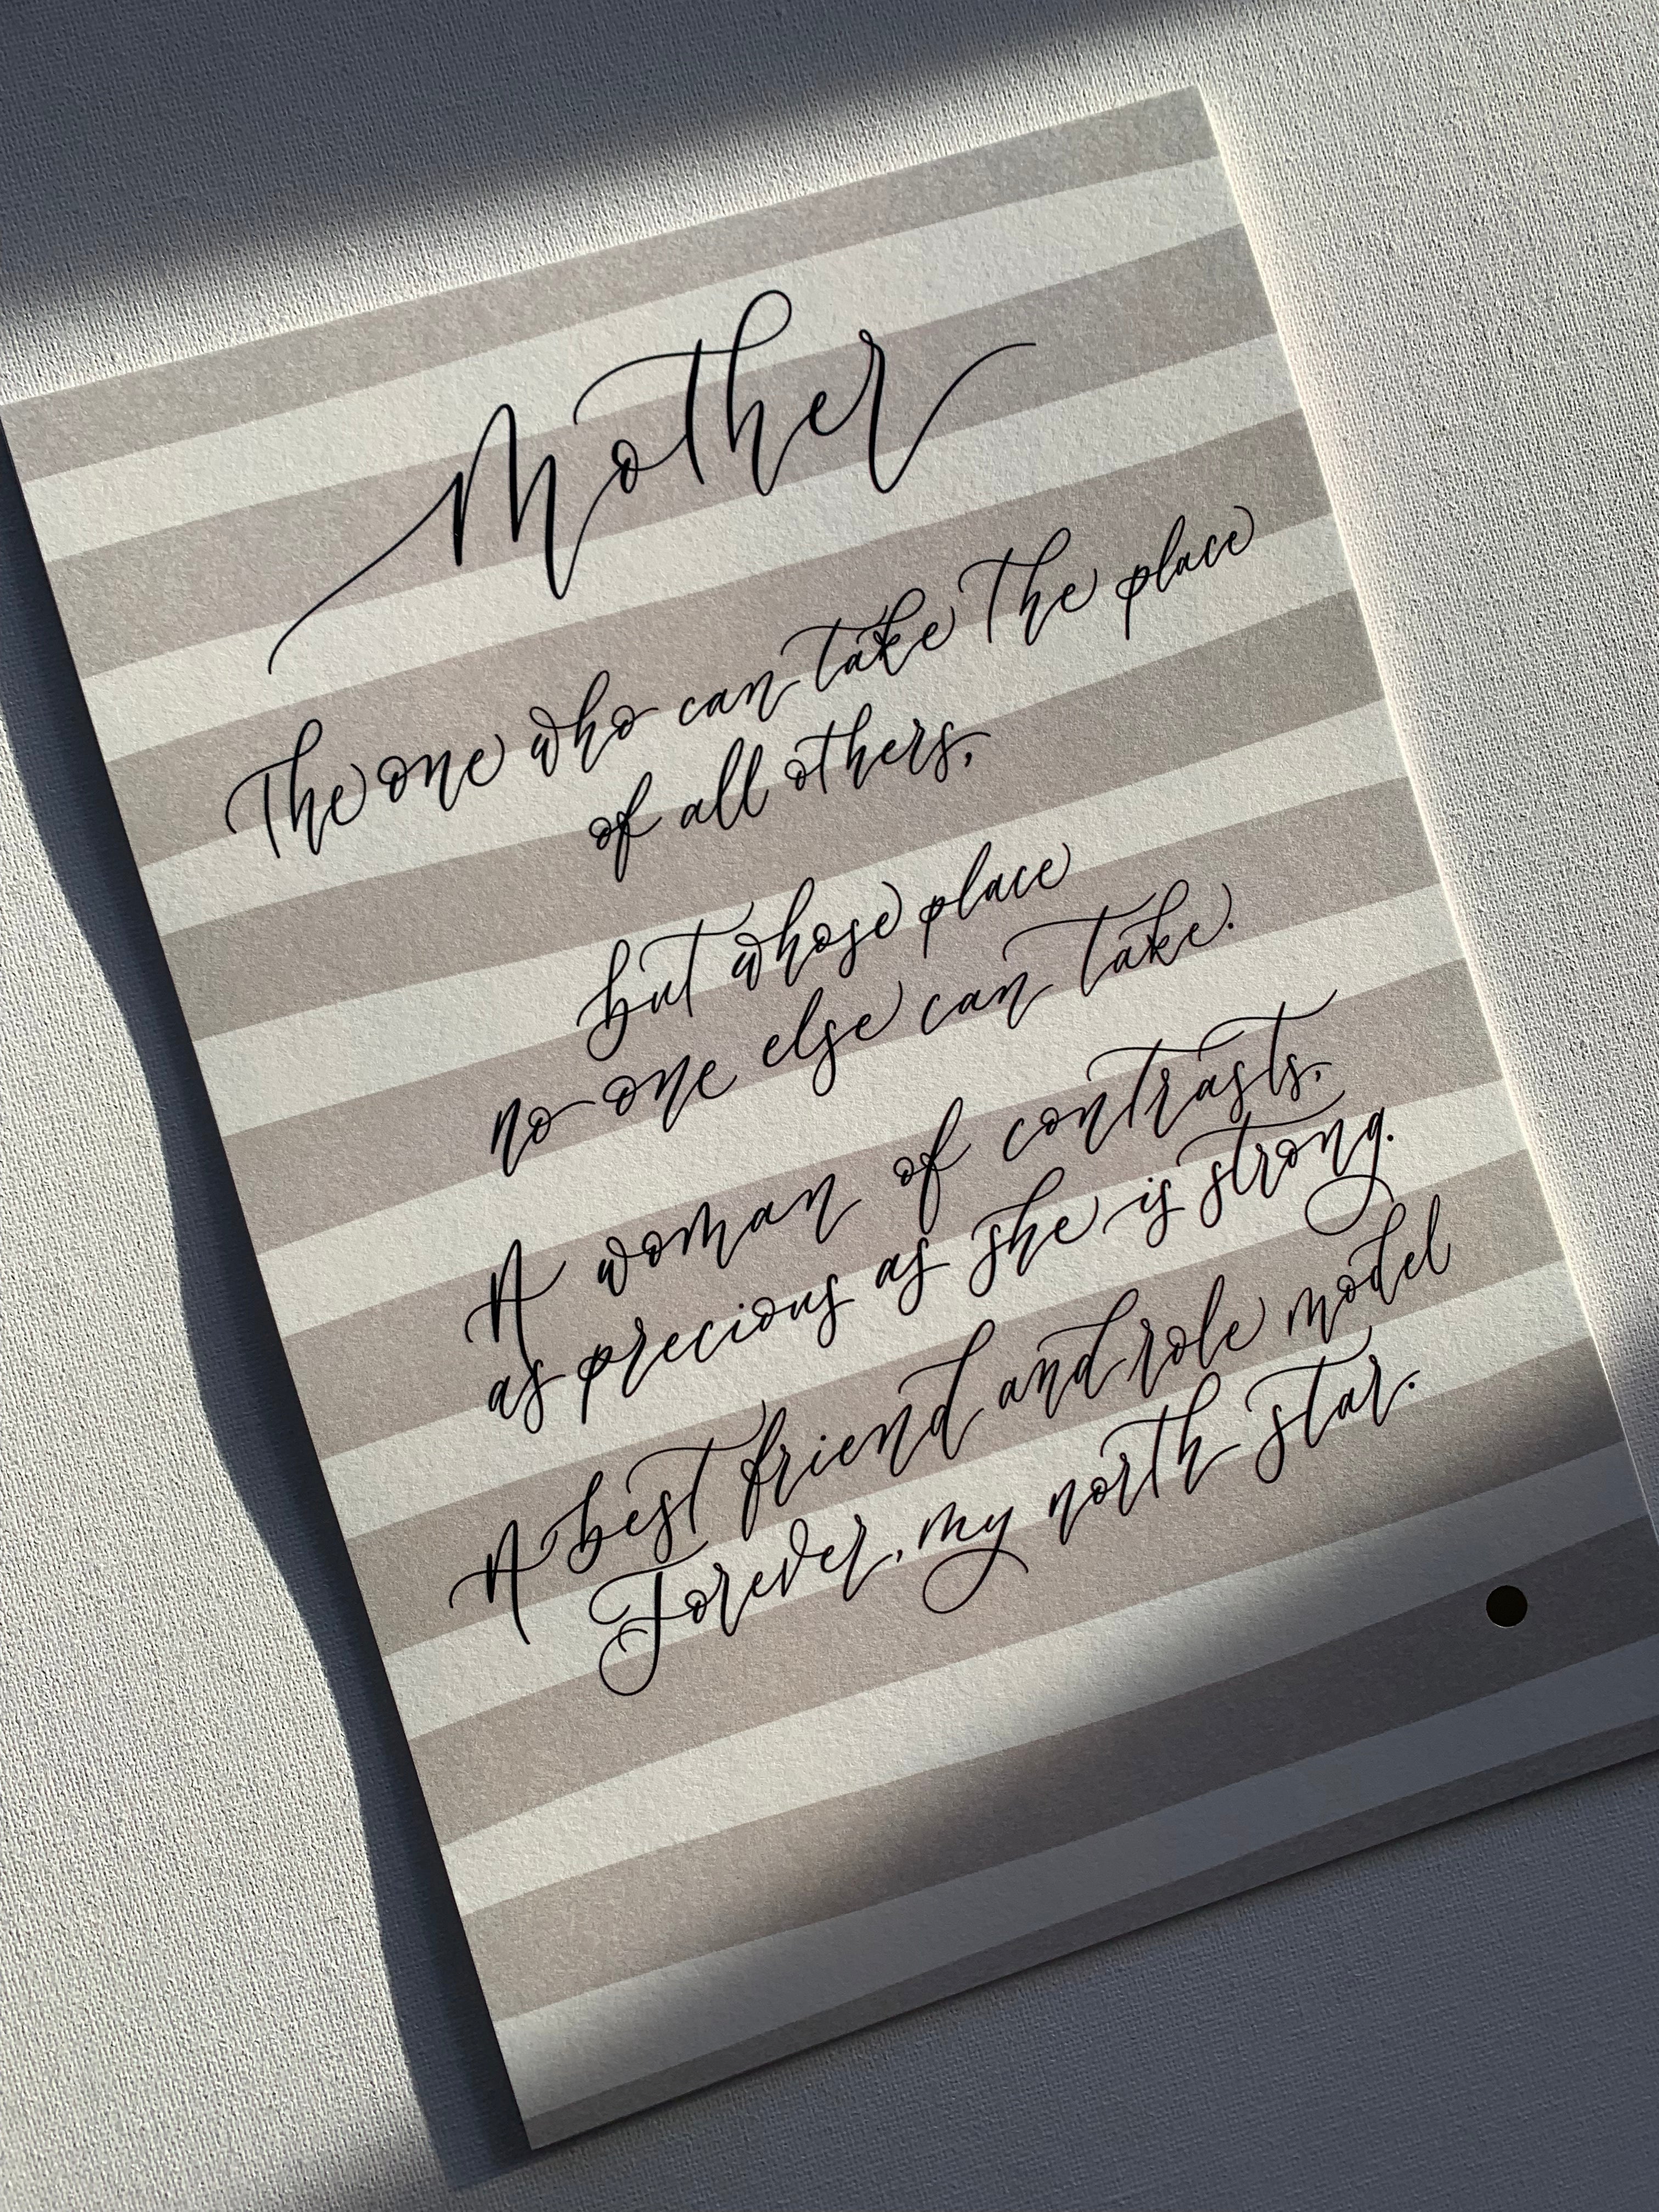 Mother
The one who can take the place
of all others,
but whose place
no one else can take.
A woman of contrasts,
as precious as she is strong.
A best friend and role model
Forever, my north star.